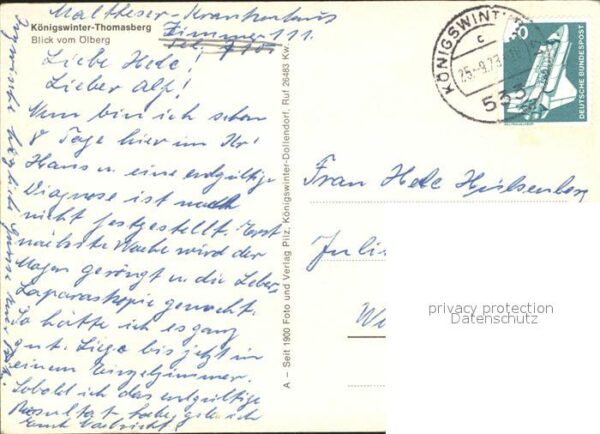 Malteser-Krankenhaus
Königswinter-Thomasberg
Blick vom Ölberg
Zimmer 111.
Liebe Hede!
Lieber Alf!
Nun bin ich schon
8 Tage hier im Kr'
Haus u. eine endgültige
Diagnose ist noch
nicht festgestellt. Erst
nächste Woche wird der
Magen geröngt u. die Leber-
Laparaskopie gemacht.
So hätte ich es ganz
gut. Liege bis jetzt in
einem Einzelzimmer.
Sobald ich das endgültige
Resultat habe, gebe ich
Euch Nachricht.
A - Seit 1900 Foto und Verlag Pilz, Königswinter-Dollendorf, Ruf 26483 Kw.
KÖNIGSWINTER
c
533
50
DEUTSCHE BUNDESPOST
Frau Hede Hülsenberg
privacy protection
Datenschutz